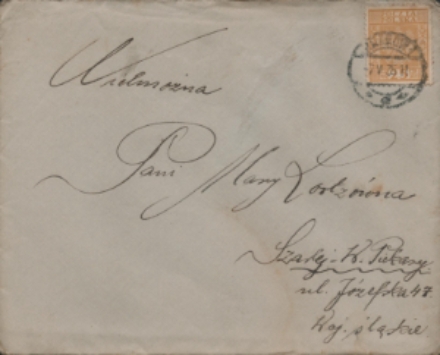 Wielmożna
Pani Mary Lodzówna
Szarlej-W. Piekary
ul. Józefska 47
Woj. śląskie